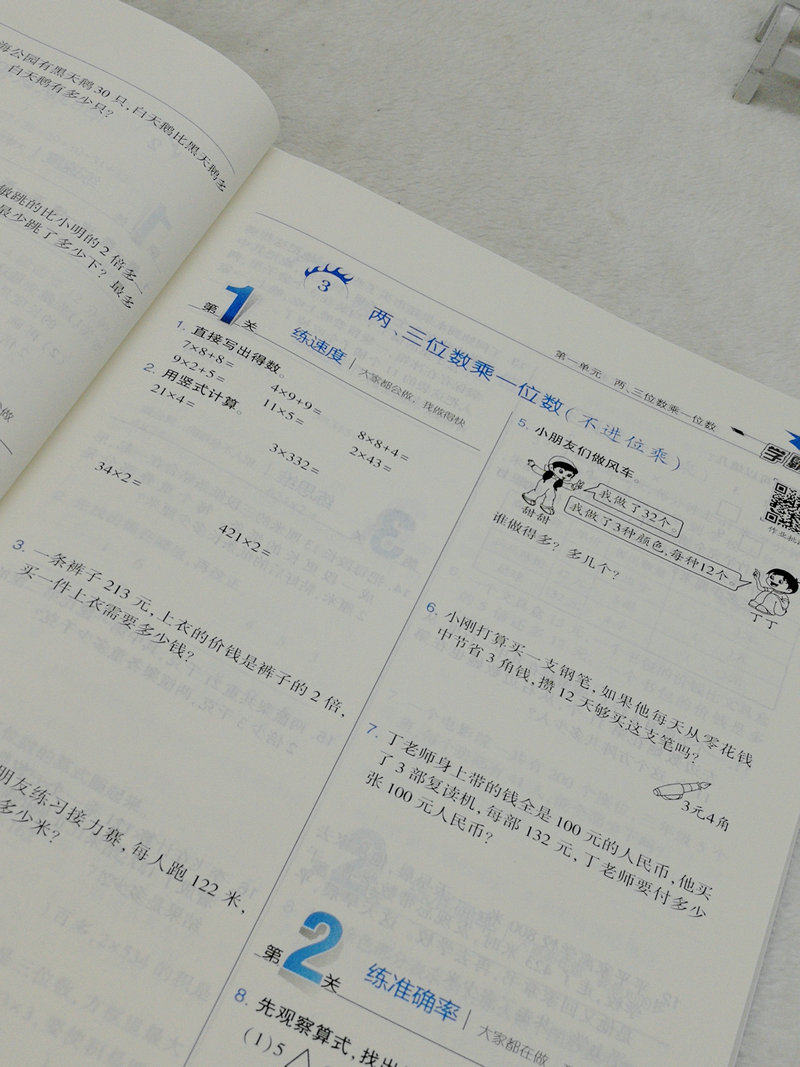 海公园有黑天鹅30只,白天鹅比黑天鹅多
白天鹅有多少只?
敏跳的比小明的2倍多
最少跳了多少下?最多
3
两、三位数乘一位数(不进位乘)
第一单元 两、三位数乘一位数
第1关 练速度 大家都会做,我做得快
1. 直接写出得数。
7×8+8= 4×9+9= 8×8+4=
9×2+5= 11×5= 2×43=
2. 用竖式计算。
21×4= 3×332=
34×2= 421×2=
3. 一条裤子213元,上衣的价钱是裤子的2倍,
买一件上衣需要多少钱?
朋友练习接力赛,每人跑122米,
多少米?
5. 小朋友们做风车。
我做了32个。
甜甜
我做了3种颜色,每种12个。
丁丁
谁做得多?多几个?
6. 小刚打算买一支钢笔,如果他每天从零花钱
中节省3角钱,攒12天够买这支笔吗?
3元4角
7. 丁老师身上带的钱全是100元的人民币,他买
了3部复读机,每部132元,丁老师要付多少
张100元人民币?
第2关 练准确率 大家都在做
8. 先观察算式,找出
(1)5